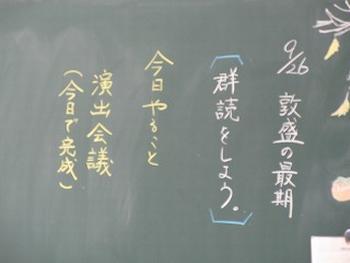 9/26 敦盛の最期
「群読をしよう。」
今日やること
演出会議
(今日で完成)